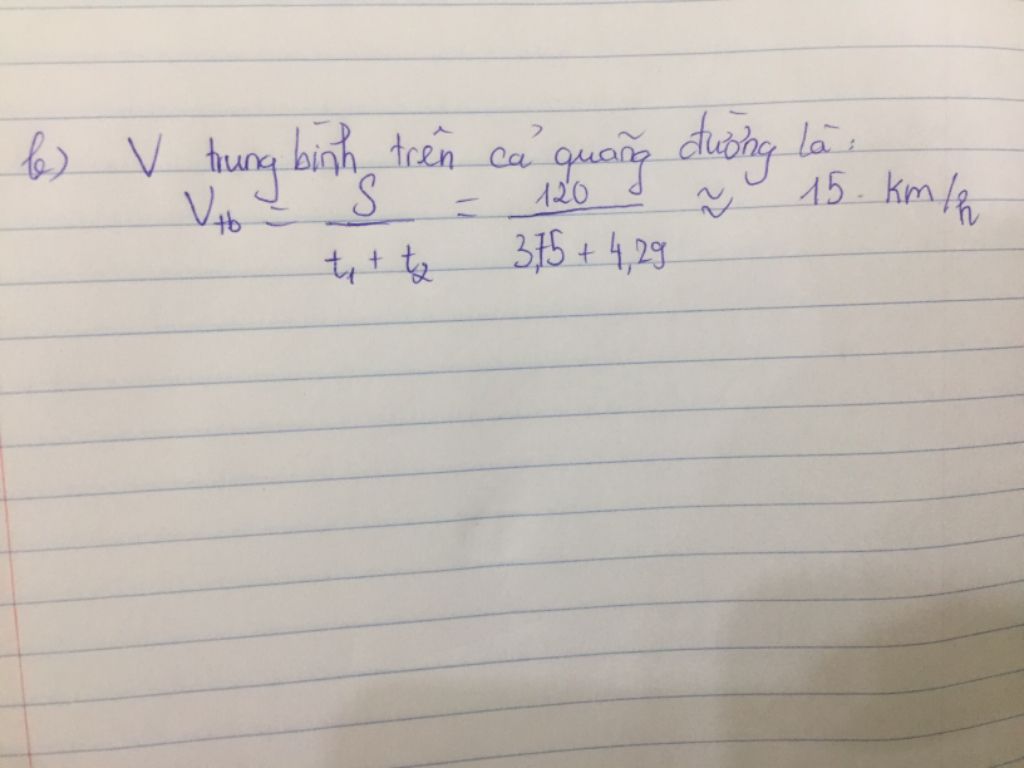 b) V trung bình trên cả quãng đường là:
Vtb = S / t1 + t2 = 120 / 3,75 + 4,29 ≈ 15. km/h